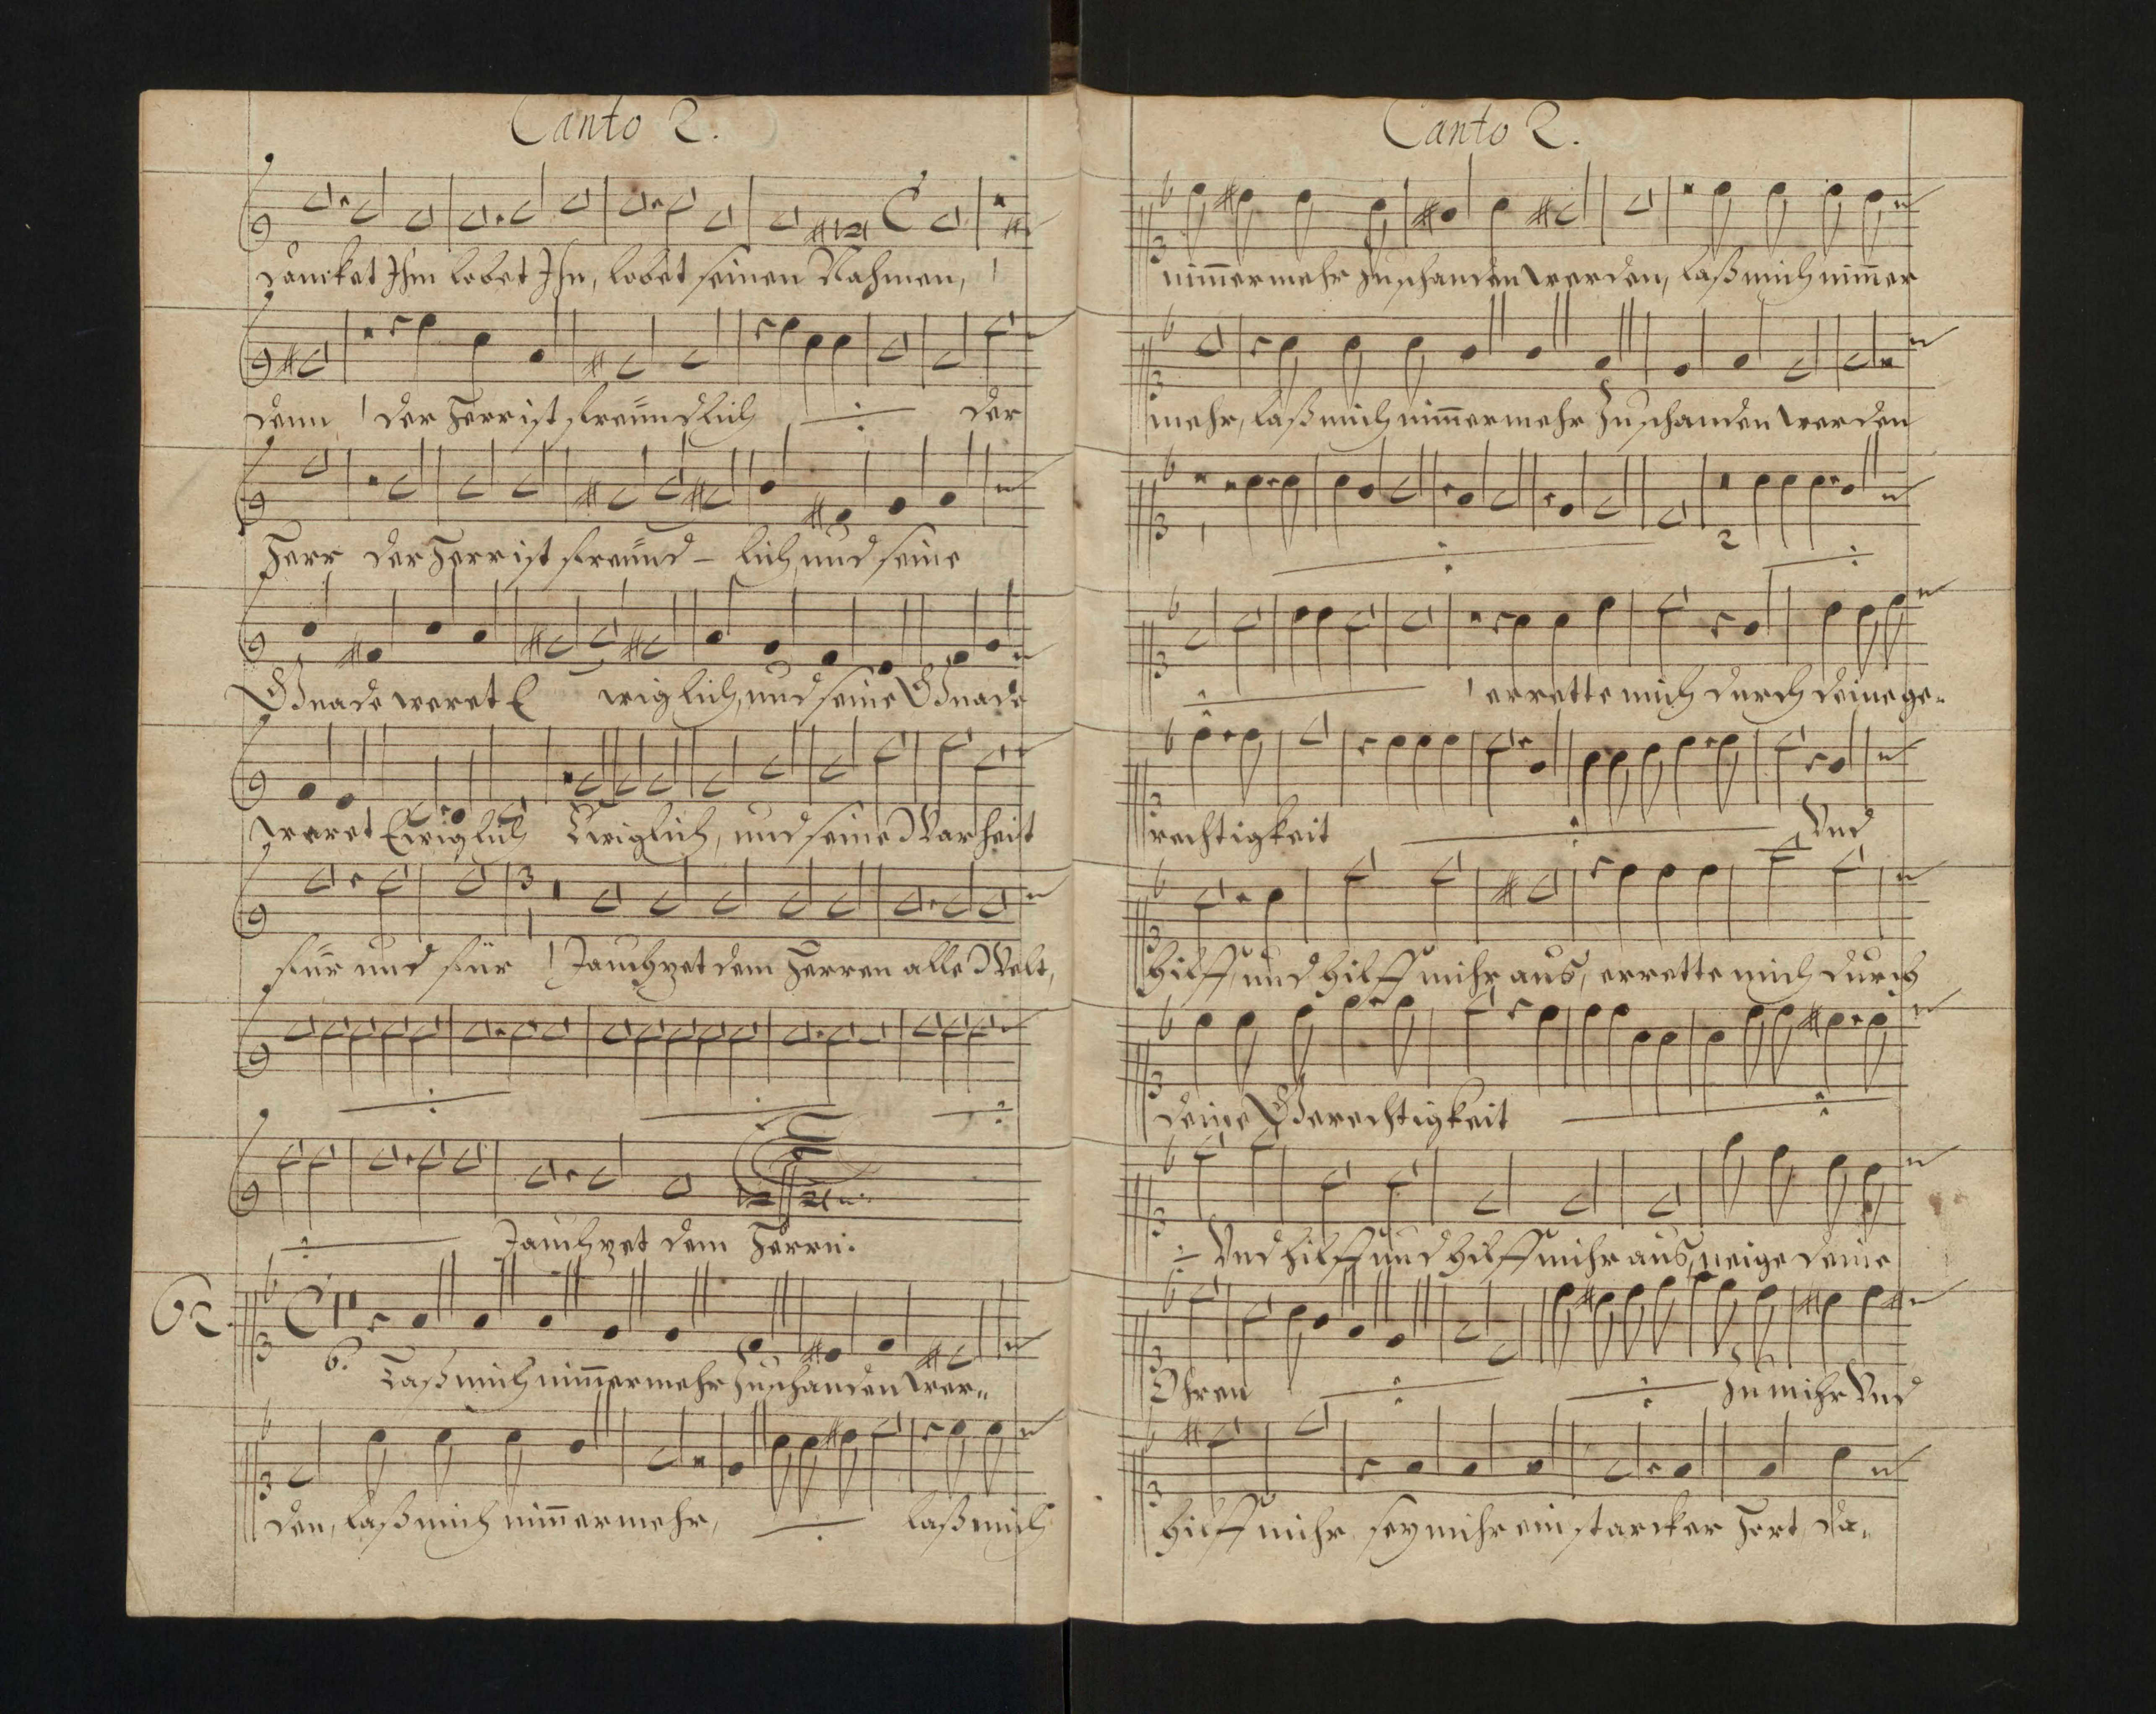 Canto 2.
dancket Ihm lobet Ihn, lobet seinen Nahmen,
denn der Herr ist freündlich der
Herr der Herr ist freünd- lich, und seine
Gnade weret E wiglich, und seine Gnade
weret Ewiglich Ewiglich, und seine Warheit
für und für Jauchzet dem Herren alle Welt,
Jauchzet dem Herrn.
62.
6.
Laß mich nim̄ermehr zuschanden wer-
den, laß mich nim̄ermehr, laß mich
Canto 2.
nim̄ermehr zuschanden werden, laß mich nim̄er
mehr, laß mich nim̄ermehr zuschanden werden
2
errette mich durch deine ge-
rechtigkeit Und
hilff, und hilff mihr aus, errette mich durch
deine Gerechtigkeit
Und hilff und hilff mihr aus, neige deine
Ohren zu mihr Und
hilff mihr sey mihr ein starcker Hort, da-